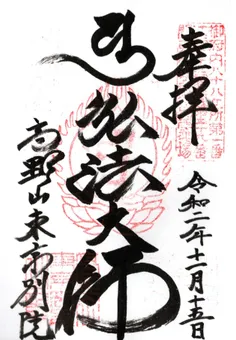 奉拝
弘法大師
高野山東京別院
令和二年十一月十五日